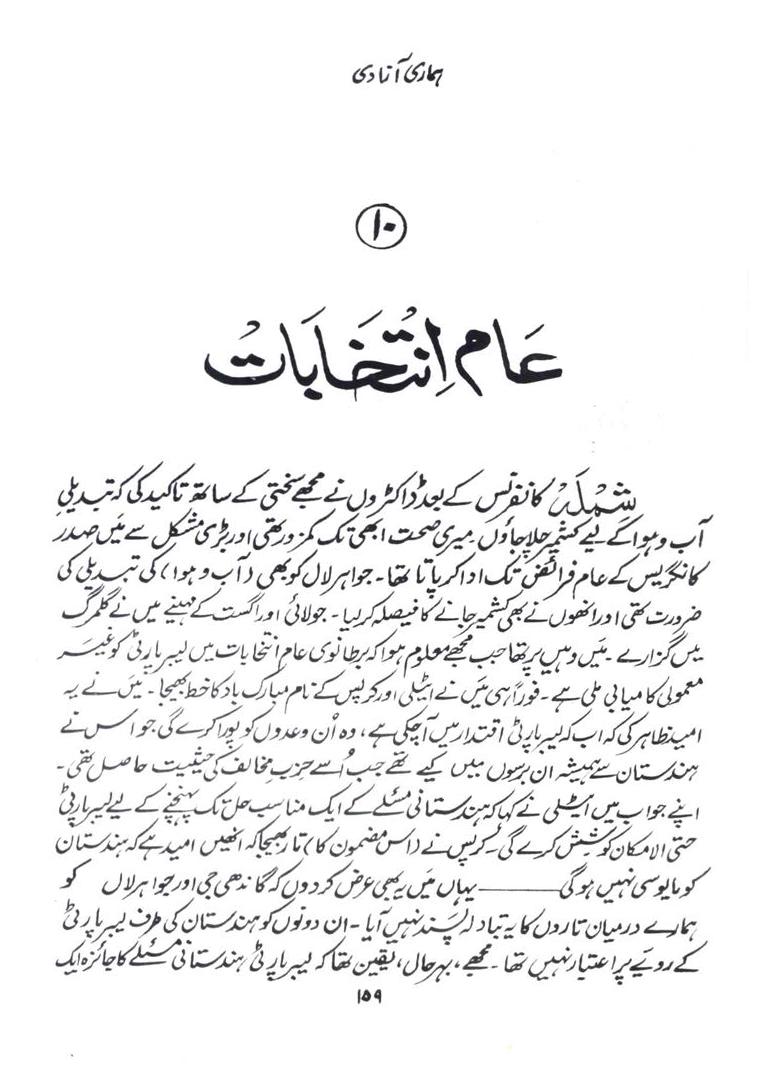 ہماری آزادی
۱۰
عَام اِنتخَابَات
شِمْلَہ کانفرنس کے بعد ڈاکٹروں نے مجھے سختی کے ساتھ تاکید کی کہ تبدیلیِ
آب و ہوا کے لیے کشمیر چلا جاؤں۔ میری صحت ابھی تک کمزور تھی اور بڑی مشکل سے میں صدر
کانگریس کے عام فرائض تک ادا کر پاتا تھا۔ جواہر لال کو بھی (آب و ہوا) کی تبدیلی کی
ضرورت تھی اور انھوں نے بھی کشمیر جانے کا فیصلہ کر لیا۔ جولائی اور اگست کے مہینے میں نے گلمرگ
میں گزارے۔ میں وہیں پر تھا جب مجھے معلوم ہوا کہ برطانوی عام انتخابات میں لیبر پارٹی کو غیر
معمولی کامیابی ملی ہے۔ فوراً ہی میں نے ایٹلی اور کرپس کے نام مبارک باد کا خط بھیجا۔ میں نے یہ
امید ظاہر کی کہ اب کہ لیبر پارٹی اقتدار میں آ چکی ہے، وہ اُن وعدوں کو پورا کرے گی جو اس نے
ہندستان سے ہمیشہ ان برسوں میں کیے تھے جب اُسے حزبِ مخالف کی حیثیت حاصل تھی۔
اپنے جواب میں ایٹلی نے کہا کہ ہندستانی مسئلے کے ایک مناسب حل تک پہنچنے کے لیے لیبر پارٹی
حتی الامکان کوشش کرے گی۔ کرپس نے (اس مضمون کا) تار بھیجا کہ انھیں امید ہے کہ ہندستان
کو مایوسی نہیں ہوگی ——— یہاں میں یہ بھی عرض کر دوں کہ گاندھی جی اور جواہر لال کو
ہمارے درمیان تاروں کا یہ تبادلہ پسند نہیں آیا۔ ان دونوں کو ہندستان کی طرف لیبر پارٹی
کے رویے پر اعتبار نہیں تھا۔ مجھے، بہرحال، یقین تھا کہ لیبر پارٹی ہندستانی مسئلے کا جائزہ ایک
۱۵۹